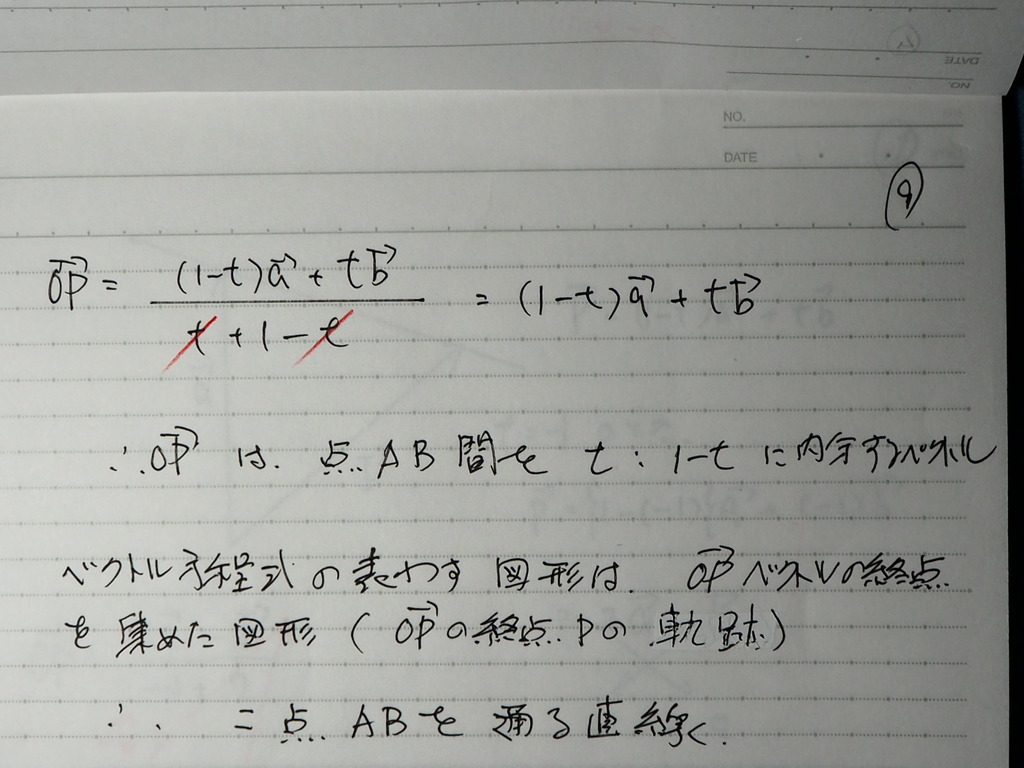 DATE
NO.
NO.
DATE
⑨
\vec{OP} = \frac{(1-t)\vec{a} + t\vec{b}}{t + 1 - t} = (1-t)\vec{a} + t\vec{b}
∴ \vec{OP} は. 点 AB 間を t : 1-t に内分するベクトル
ベクトル方程式の表わす図形は. \vec{OP} ベクトルの終点
を集めた図形 ( \vec{OP} の終点 P の軌跡)
∴ 二点 AB を通る直線